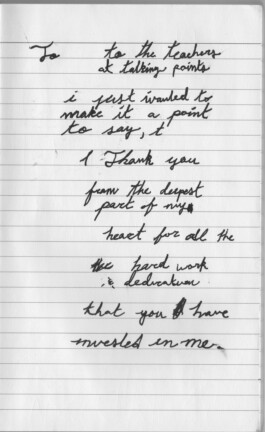 To to the teachers
at talking points
i just wanted to
make it a point
to say, t
I Thank you
from the deepest
part of my
heart for all the
the hard work
& dedication
that you have
invested in me.